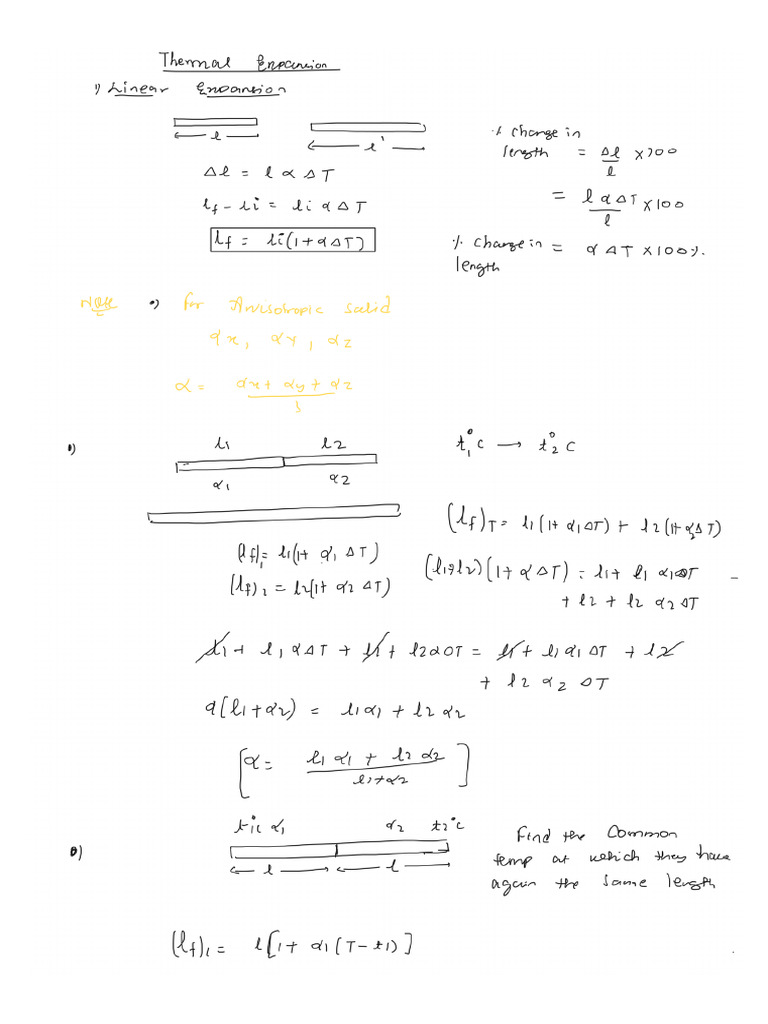 Thermal Expansion
1) Linear Expansion
l
l'
Δl = l α ΔT
lf - li = li α ΔT
lf = li(1+αΔT)
% change in
length = Δl/l × 100
= l α ΔT/l × 100
% change in = α ΔT × 100%.
length
Note •) For Anisotropic solid
αx, αy, αz
α = αx + αy + αz / 3
1)
l1 l2
α1 α2
t1°C → t2°C
(lf)T = l1(1+ α1ΔT) + l2(1+α2ΔT)
(lf)1 = l1(1+ α1 ΔT)
(lf)2 = l2(1+ α2 ΔT)
(l1+l2)(1+αΔT) = l1+ l1 α1ΔT
+ l2 + l2 α2ΔT
l1 + l1 αΔT + l1 + l2αΔT = l1 + l1α1 ΔT + l2
+ l2 α2 ΔT
α(l1+α2) = l1α1 + l2 α2
[α = l1 α1 + l2 α2 / l1+α2]
t1c α1 α2 t2°C
l l
Find the Common
temp at which they have
again the same length
(lf)1 = l[1+ α1(T-t1)]